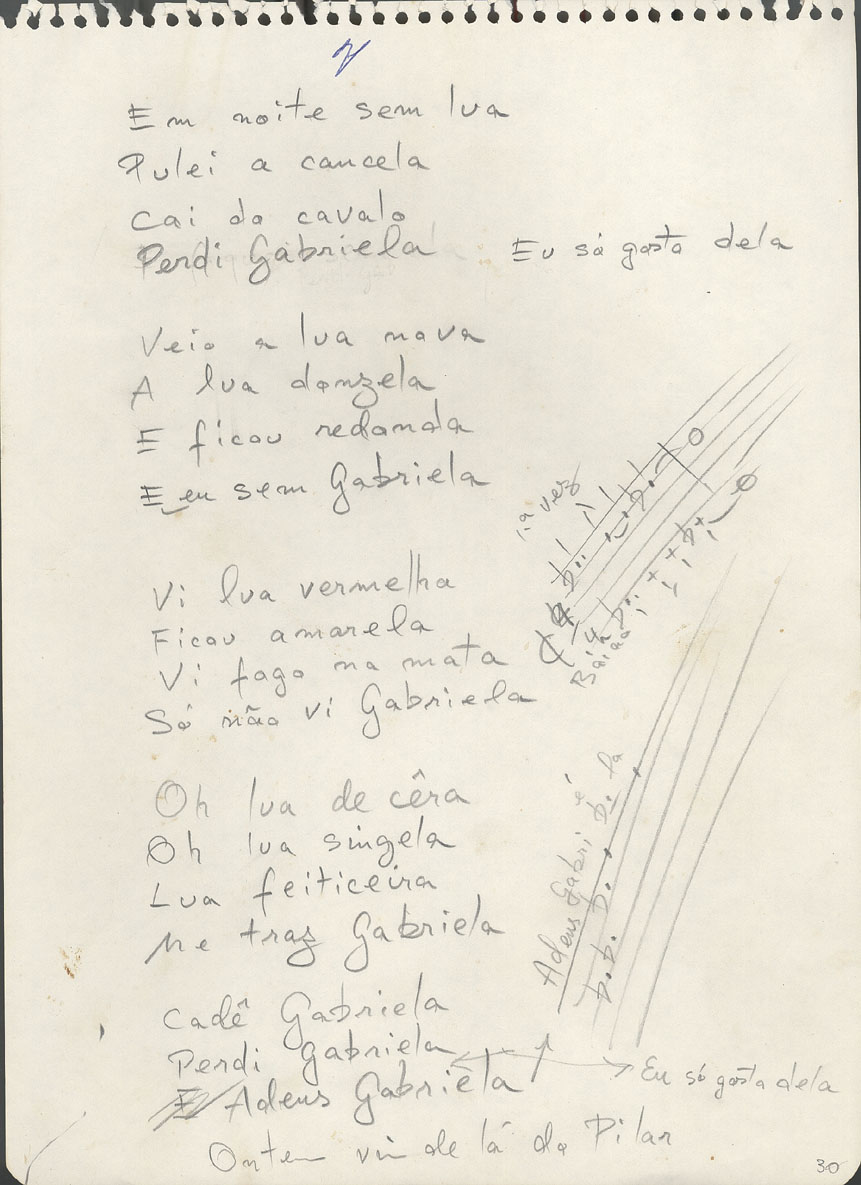 Em noite sem lua
Pulei a cancela
Cai do cavalo
Perdi Gabriela Eu só gosto dela
Veio a lua nova
A lua donzela
E ficou redonda
E eu sem Gabriela
1ª vez
Baixo
Vi lua vermelha
Ficou amarela
Vi fogo na mata
Só não vi Gabriela
Oh lua de cêra
Oh lua singela
Lua feiticeira
Me traz Gabriela
Adeus Gabri é la
Cadê Gabriela
Perdi Gabriela
E Adeus Gabriela
Eu só gosto dela
Ontem vim de lá do Pilar
30